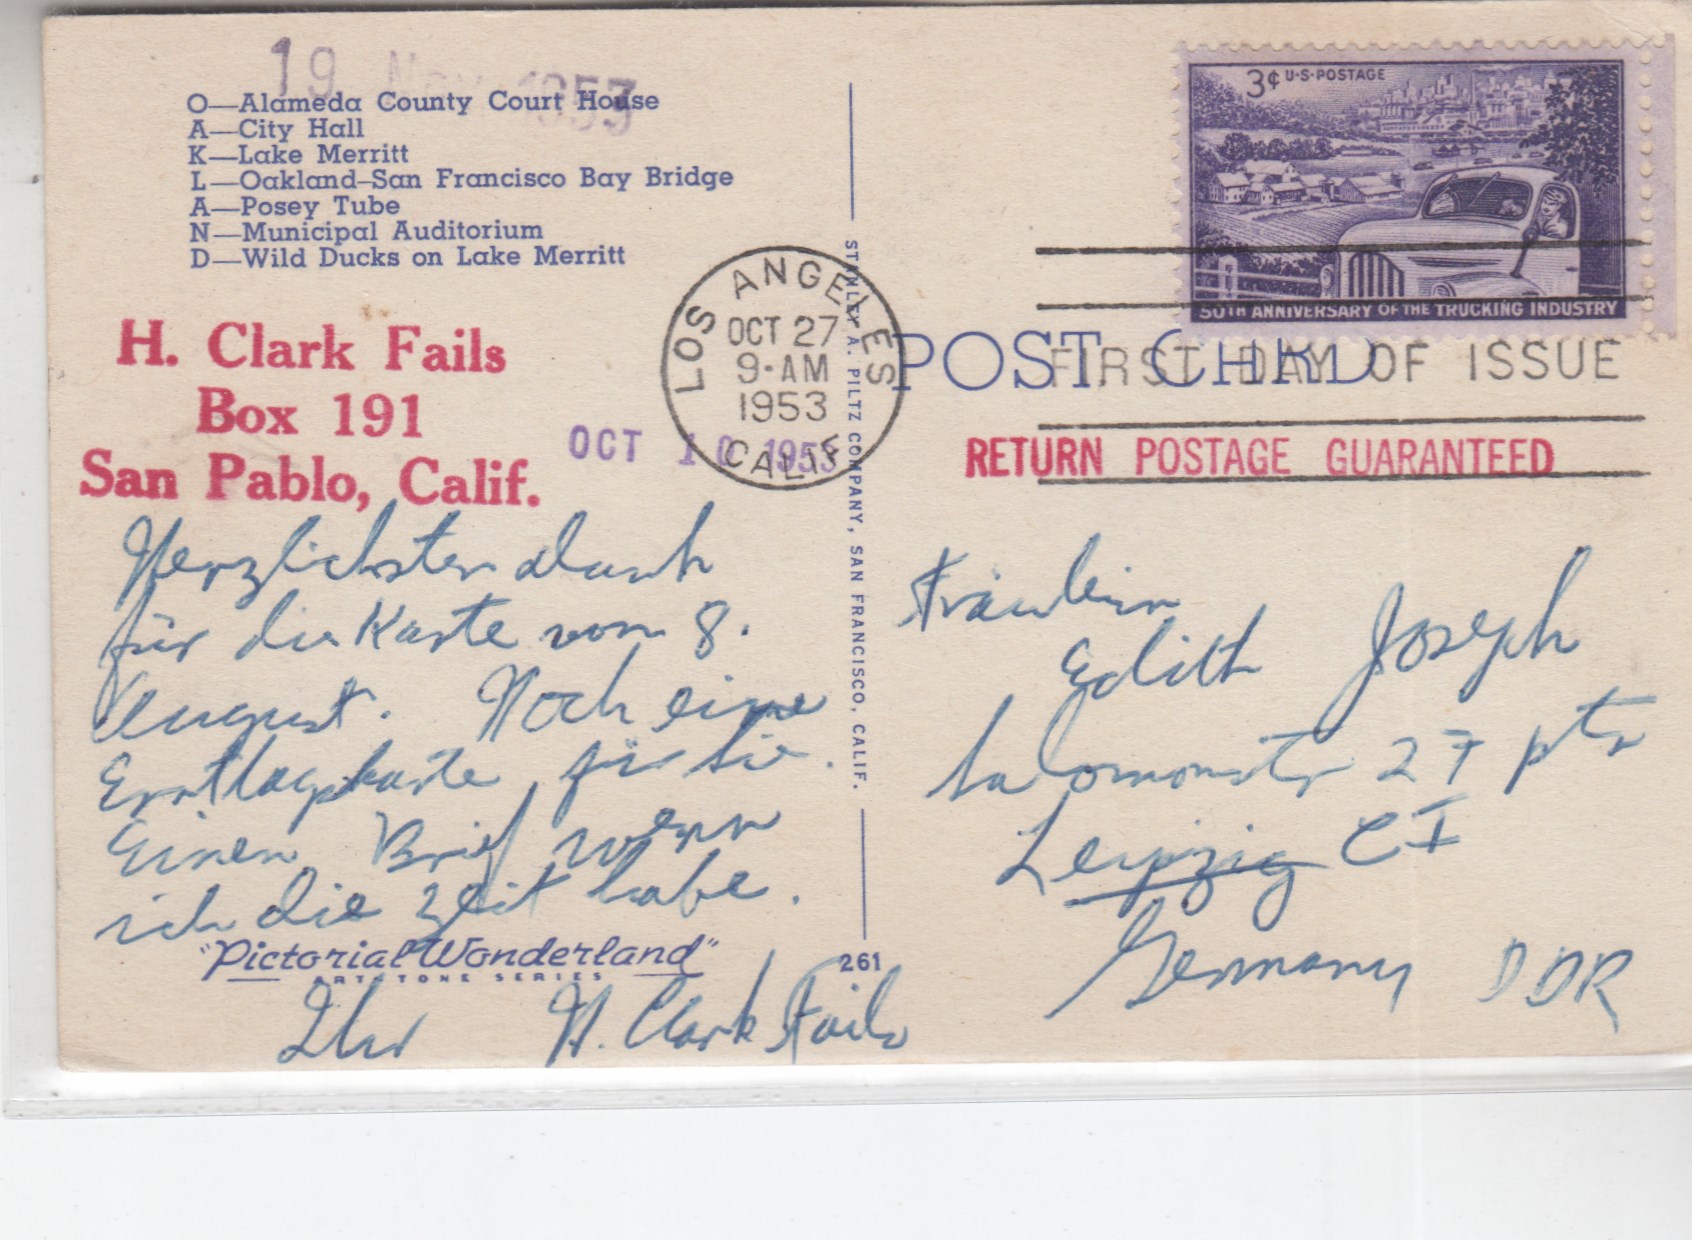 19 Nov 1953
O—Alameda County Court House
A—City Hall
K—Lake Merritt
L—Oakland–San Francisco Bay Bridge
A—Posey Tube
N—Municipal Auditorium
D—Wild Ducks on Lake Merritt
H. Clark Fails
Box 191
San Pablo, Calif.
OCT 10 1953
Herzlichsten dank
für die Karte vom 8.
August. Noch eine
Ersttagskarte für Sie.
Einen Brief wenn
ich die zeit habe.
"Pictorial Wonderland"
ART TONE SERIES
Ihr H. Clark Fails
LOS ANGELES
OCT 27
9-AM
1953
CALIF
STANLEY A. PILTZ COMPANY, SAN FRANCISCO, CALIF.
261
3¢ U·S·POSTAGE
50TH ANNIVERSARY OF THE TRUCKING INDUSTRY
POST CARD
FIRST DAY OF ISSUE
RETURN POSTAGE GUARANTEED
Fräulein
Edith Joseph
Salomonstr 27 ptr
Leipzig C I
Germany DDR